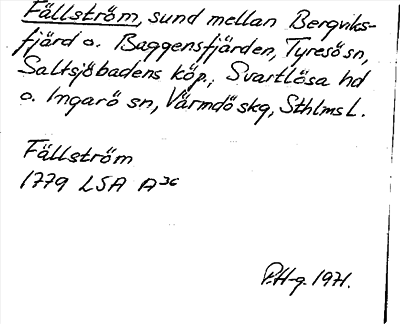 Fällström, sund mellan Bergviks-
fjärd o. Baggensfjärden, Tyresö sn,
Saltsjöbadens köp., Svartlösa hd
o. Ingarö sn, Värmdö skg, Sthlms L.
Fällström
1779 LSA A 36
P.H-g. 1971.